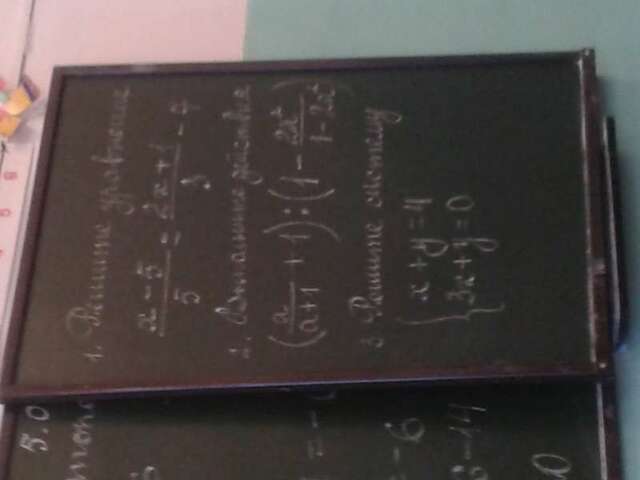 5.0
1. Решите уравнение
x-5/5 = 2x+1/3 - 7
2. Выполните действия
(a/a+1 + 1) : (1 - 2a²/1-2a²)
3 Решите систему
x+y=4
3x+y=0
-6
-14